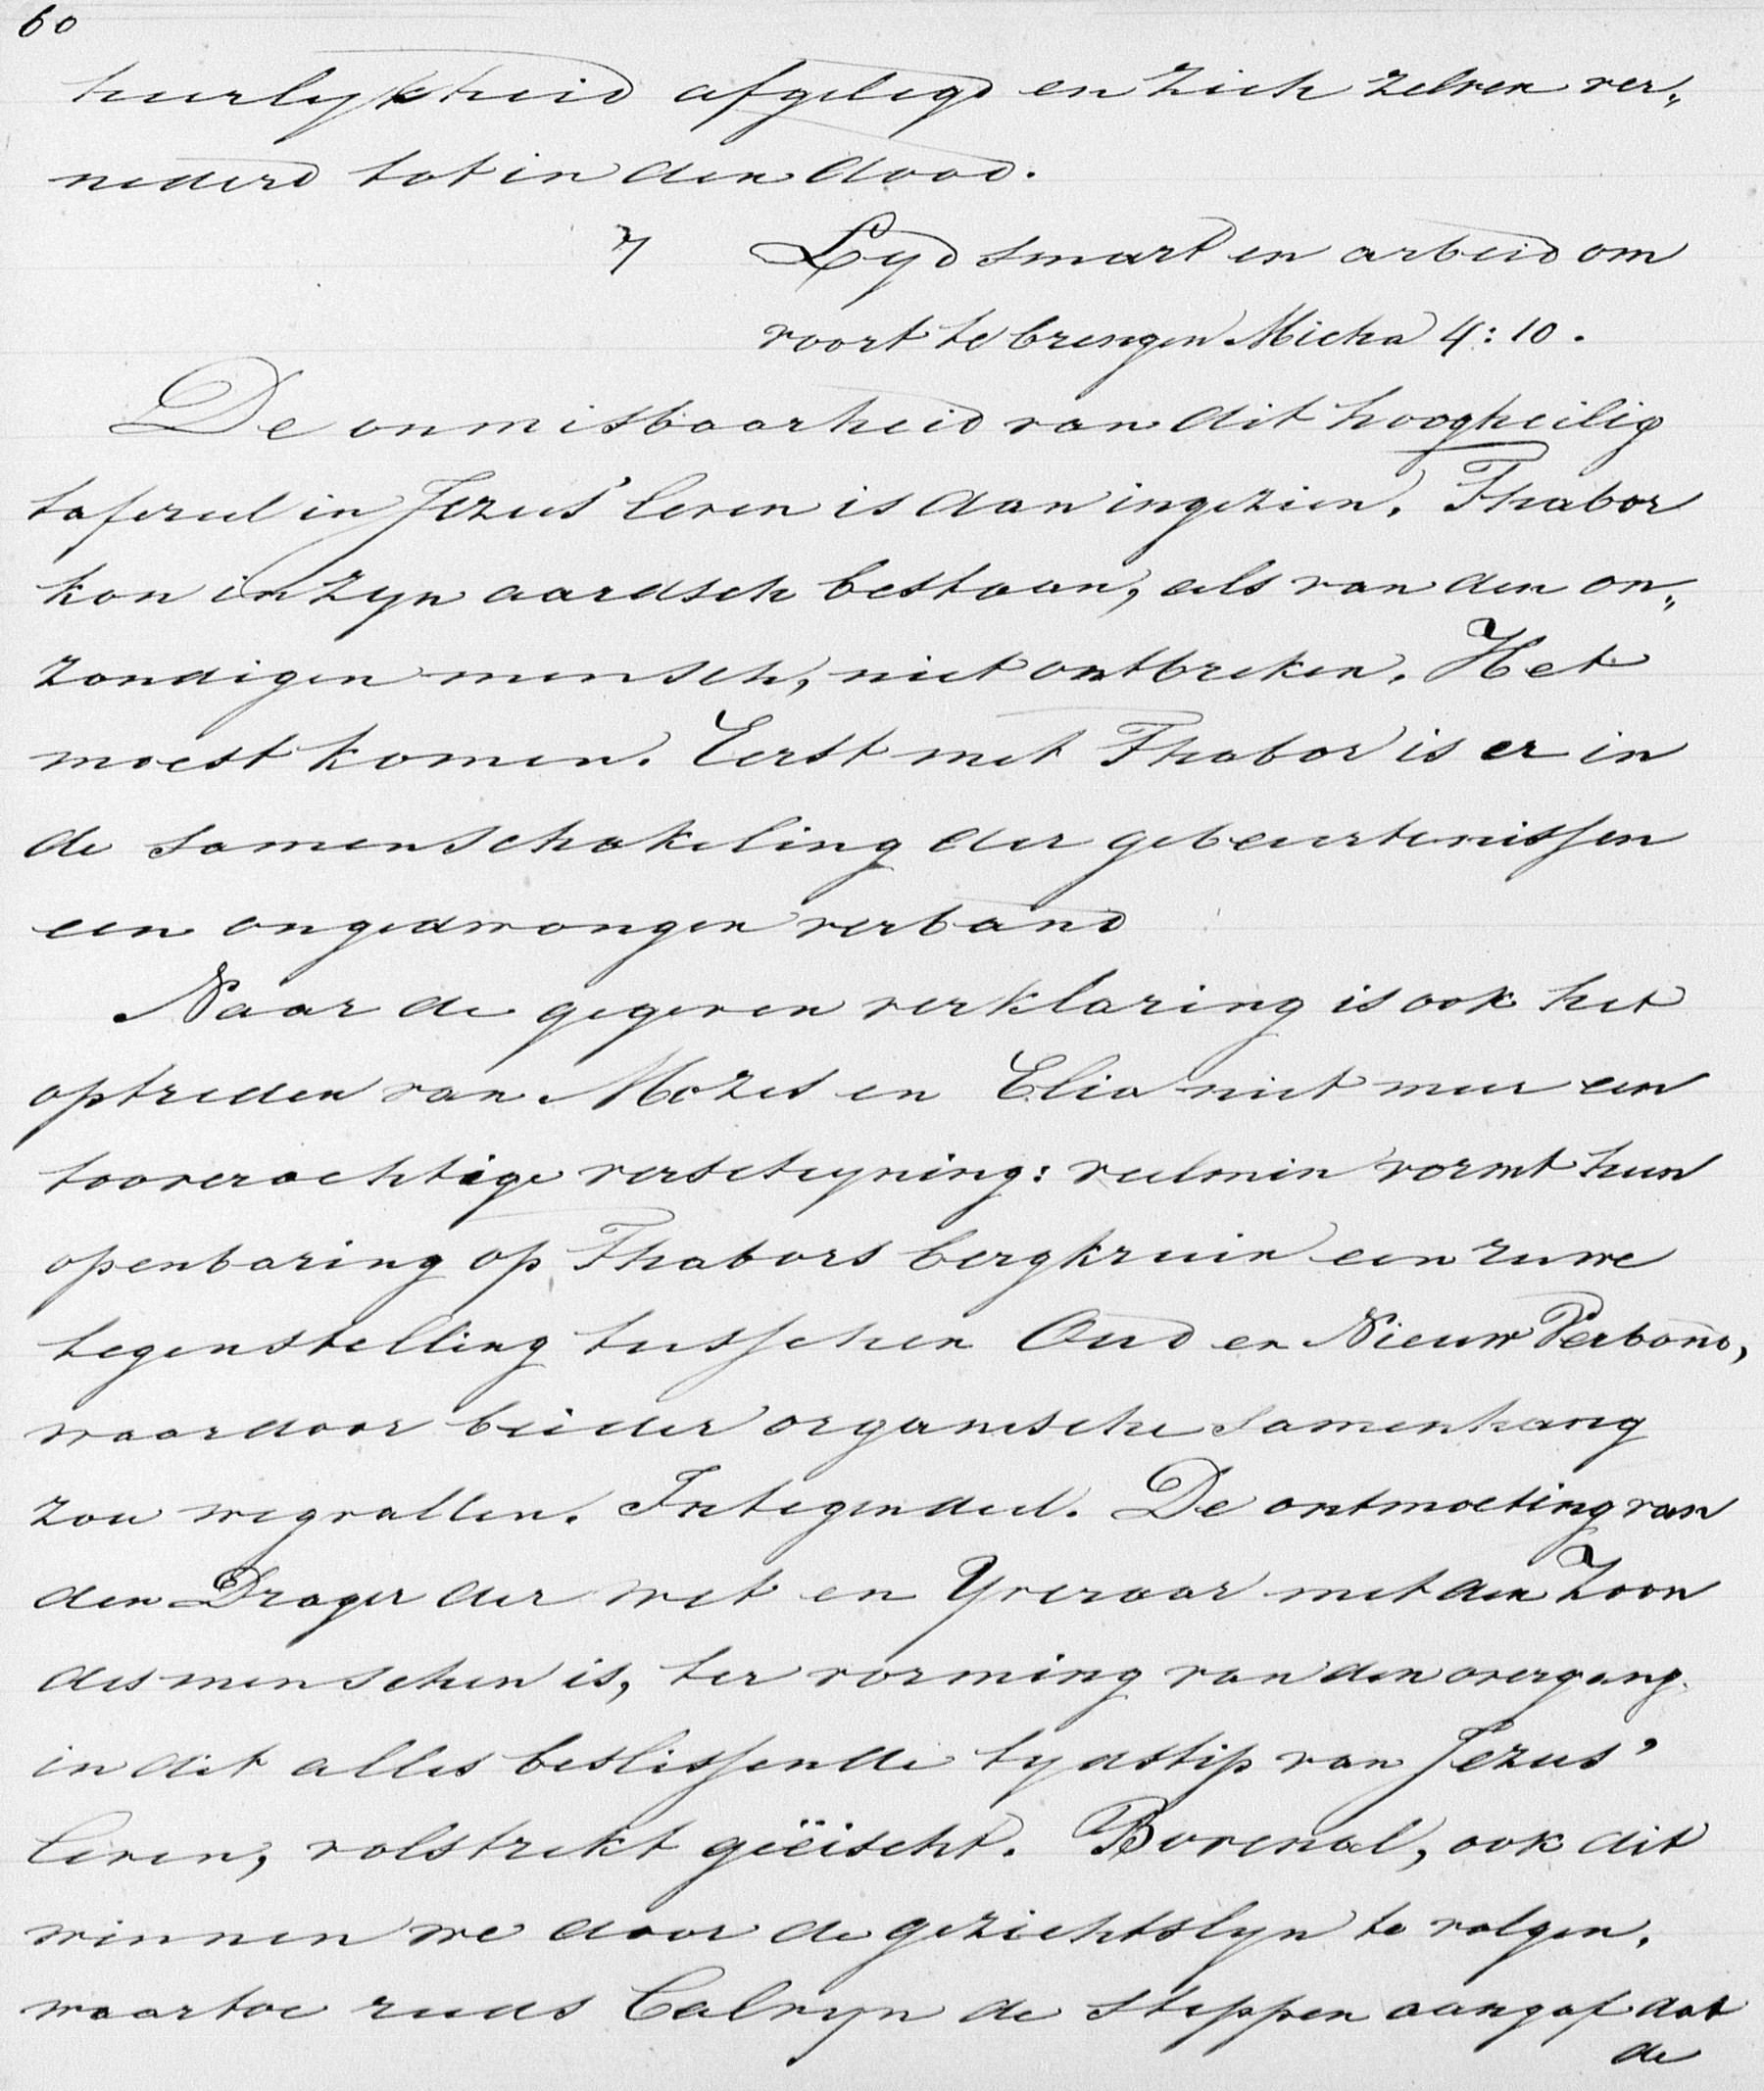 60
heerlykheid afgelegd en zich zelven ver„
nederd tot in den dood.
7 Lyd smart en arbeid om
voort te brengen Micha 4:10.
De onmisbaarheid van dit hoogheilig
tafereel in Jezus' leven is dan ingezien. Thabor
kon in zyn aardsch bestaan, als van den on„
zondigen mensch, niet ontbreken. Het
moest komen. Eerst met Thabor is er in
de samenschakeling der gebeurtenissen
een ongedwongen verband
Naar de gegeven verklaring is ook het
optreden van Mozes en Elia niet meer een
tooverachtige verschyning: veelmin vormt hun
openbaring op Thabors bergkruin een ruwe
tegenstelling tusschen Oud en Nieuw Verbond,
waardoor beider organische samenhang
zou wegvallen. Integendeel. De ontmoeting van
den Drager der wet en Yveraar met den Zoon
des menschen is, ter vorming van den overgang
in dit alles beslissende tydstip van Jezus'
leven, volstrekt geëischt. Bovenal, ook dit
winnen we door de gezichtslyn te volgen,
waartoe reeds Calvyn de stippen aangaf dat
de